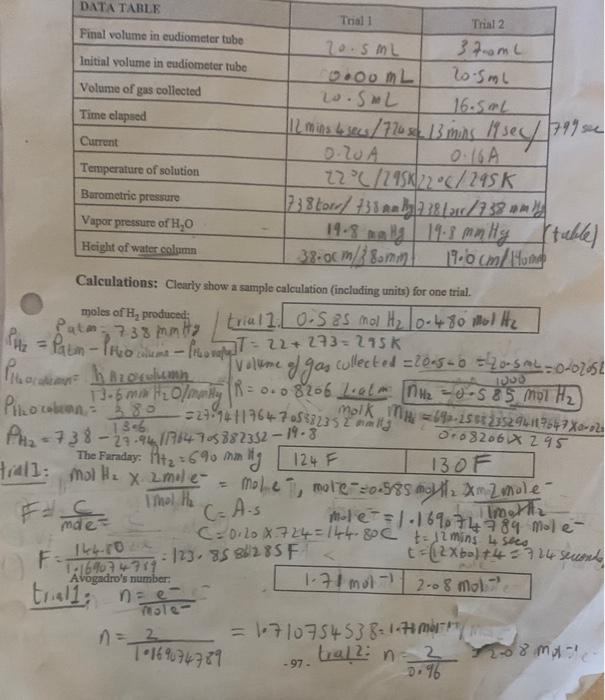 DATA TABLE Trial 1 Trial 2
Final volume in eudiometer tube 20.5 mL 37.0 mL
Initial volume in eudiometer tube 0.00 mL 20.5 mL
Volume of gas collected 20.5 mL 16.5 mL
Time elapsed 12 mins 4 secs / 724 sec 13 mins 19 sec / 799 sec
Current 0.20A 0.16A
Temperature of solution 22°C/295K 22°C/295K
Barometric pressure 738 torr/ 738 mmHg 738 torr/738 mmHg
Vapor pressure of H₂O 19.8 mmHg 19.8 mmHg (table)
Height of water column 38.0cm/380mm 19.0 cm/190mm
Calculations: Clearly show a sample calculation (including units) for one trial.
moles of H₂ produced: trial 1: 0.585 mol H₂ 0.480 mol H₂
Patm = 738 mmHg T = 22 + 273 = 295K
PH₂ = Patm - PH₂O column - PH₂O vapor
Volume of gas collected = 20.5-0 = 20.5mL = 0.0205L
1000
PH₂O column = hH₂O column
13.6 mm H₂O/mmHg R = 0.08206 L.atm
mol K nH₂ = 0.585 mol H₂
PH₂O column = 380
13.6 = 27.9411764705882352 mmHg nH₂ = 690.2588235294117647 x 0.020
0.08206 x 295
PH₂ = 738 - 27.9411764705882352 - 19.8
The Faraday: PH₂ = 690 mmHg 124 F 130 F
trial 1: mol H₂ x 2 mol e⁻
1 mol H₂ = mol e⁻, mol e⁻ = 0.585 mol H₂ x 2 mole⁻
1 mol H₂
F = C
mol e⁻ C = A.s mol e⁻ = 1.169074789 mole⁻
C = 0.20 x 724 = 144.80C t = 12 mins 4 secs
t = (12x60)+4 = 724 seconds
F = 144.80
1.169074789 = 123.8586285F
Avogadro's number: 1.71 mol⁻¹ 2.08 mol⁻¹
trial 1: n = e⁻
mole⁻
n = 2
1.169074789 = 1.710754538 = 1.71 mol⁻¹
trial 2: n = 2
0.96 = 2.08 mol⁻¹
-97-